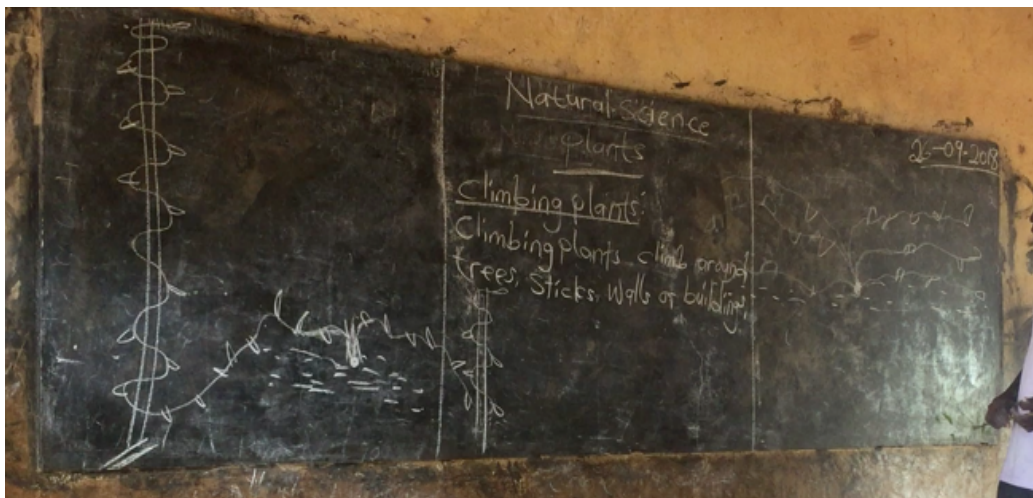 Natural Science
plants
climbing plants:
Climbing plants climb around
trees, Sticks, Walls or buildings.